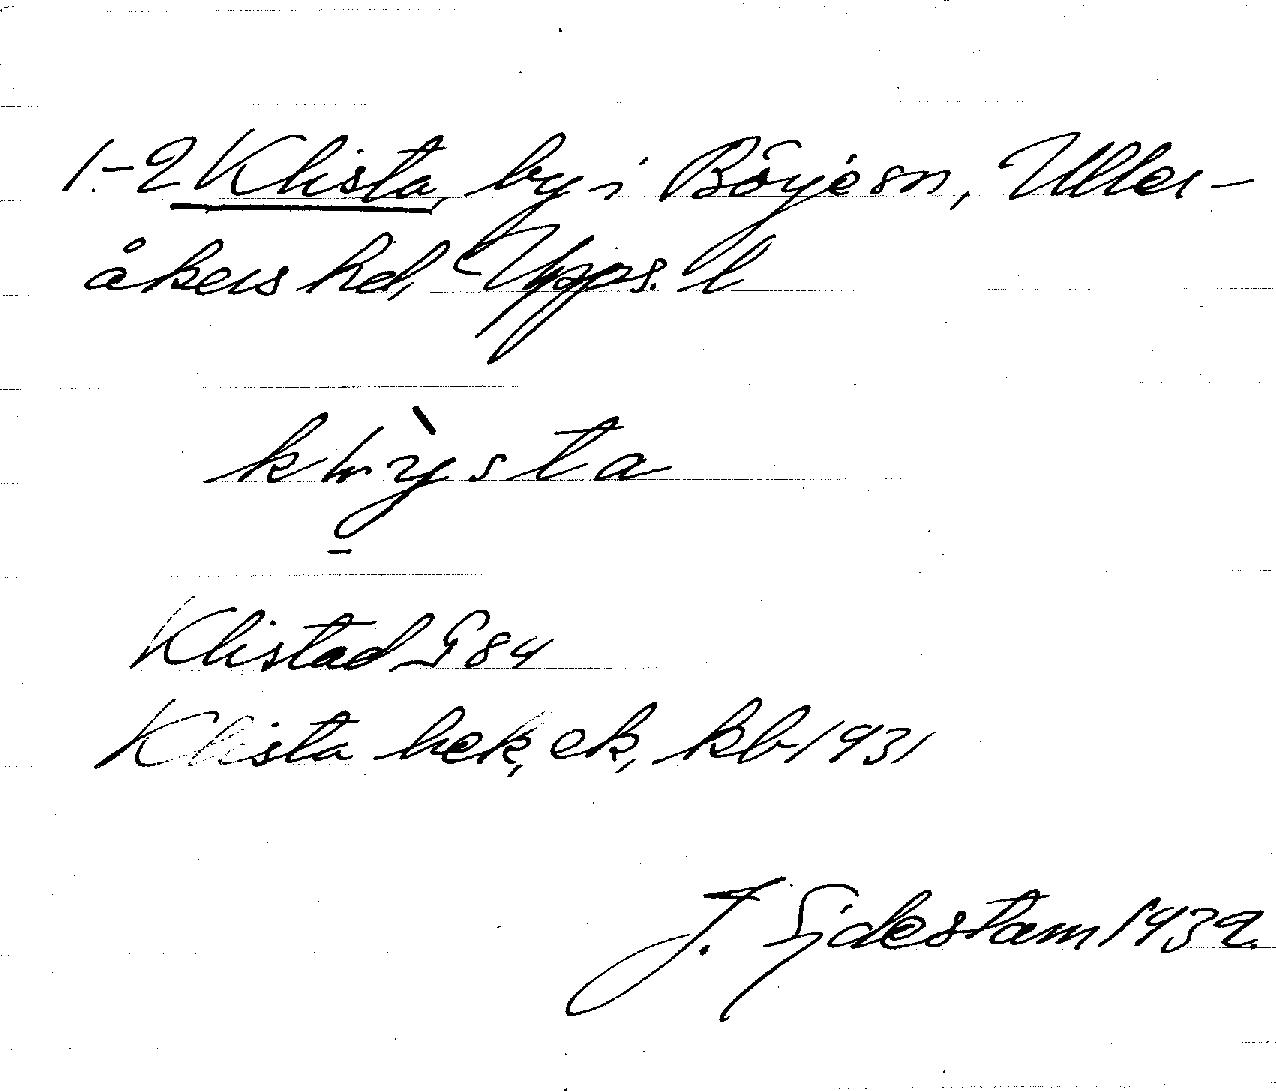 1-2 Klista, by i Börje sn, Uller-
åkers hd, Upps. l
Klistad G 84
Klista hek, ek, kb 1931
J. Sjdestam 1932.